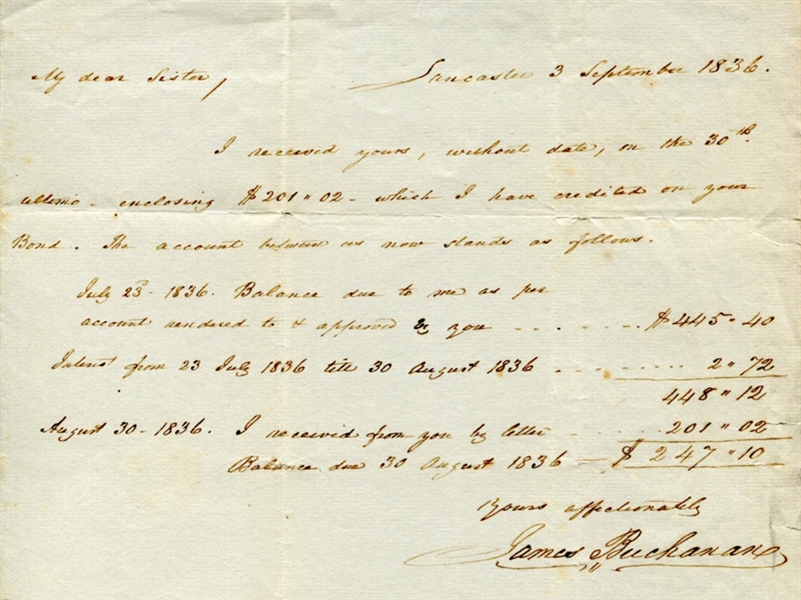 Lancaster 3 September 1836.
My dear Sister,
I received yours, without date, on the 30th.
ultimo - enclosing $201"02 - which I have credited on your
Bond. The account between us now stands as follows.
July 23d - 1836. Balance due to me as per
account rendered to & approved by you - - - - - - - $445"40
Interest from 23 July 1836 till 30 August 1836 - - - - - - - - 2"72
448"12
August 30 - 1836. I received from you by letter - - - - 201"02
Balance due 30 August 1836 — $ 247"10
Yours affectionately
James Buchanan